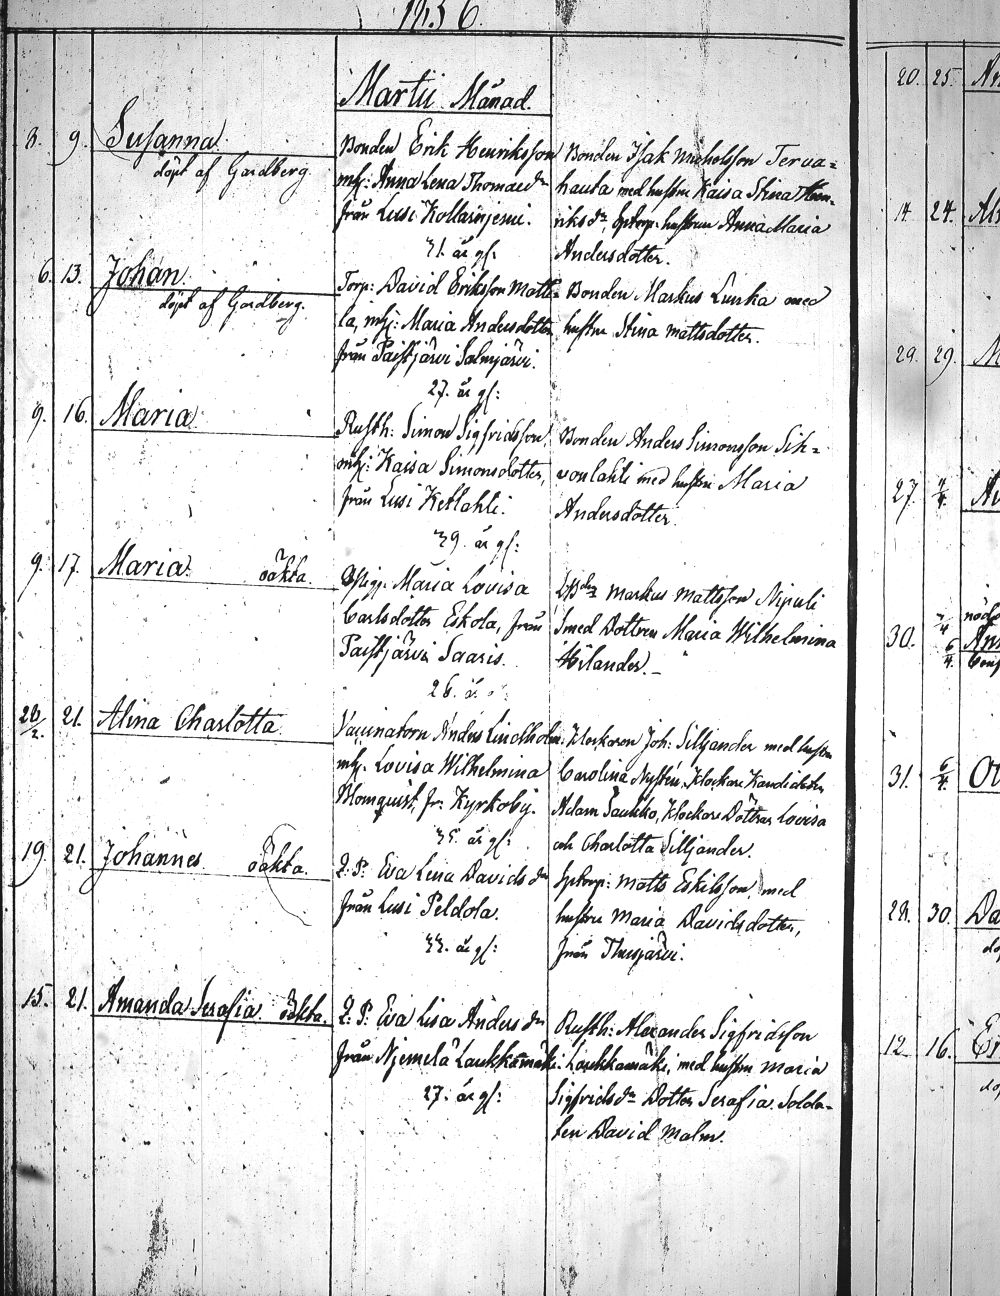 1856.
Martii Månad.
8. 9. Susanna.
döpt af Gardberg.
Bonden Erik Henriksson
mhj: Anna Lena Thomasdr
från Lusi Kottarinjemi.
31. år gl:
Bonden Isak Michelsson Terva=
hauta med hustru Kaisa Stina Hen-
riksdr, hustrun Anna Maria
Andersdotter.
6. 13. Johan.
döpt af Gardberg.
Torp: David Eriksson Matti=
la, mhj: Maria Andersdotter
från Paistjärvi Salmjärvi.
27. år gl:
Bonden Markus Lurka med
hustru Stina Mattsdotter.
9. 16. Maria.
Rusth: Simon Sigfridsson
mhj: Kaisa Simonsdotter,
från Lusi Ketlahti.
39. år gl:
Bonden Anders Simonsson Sih=
vonlahti med hustru Maria
Andersdotter.
9. 17. Maria. oäkta.
Maria Lovisa
Carlsdotter Eskola, från
Paistjärvi Saaris.
26. år
Markus Mattsson Nipuli
med Dottren Maria Wilhelmina
Hilander.-
28/2. 21. Alina Charlotta.
Vaccinatorn Anders Lindholm
mhj. Lovisa Wilhelmina
Blomquist, fr. Kyrkoby.
35. år gl:
Klockaren Joh: Silljander med hustru
Carolina Nysten, Klockare Kandidaten
Adam Saukko, Klockare Döttrar Lovisa
och Charlotta Silljander.
19. 21. Johannes oäkta.
Q: P: Eva Lena Davids dr
från Lusi Peldola.
33. år gl:
Matts Eskilsson, med
hustru Maria Davidsdotter,
från Thusjärvi.
15. 21. Amanda Serafia. oäkta.
Q: P: Eva Lisa Anders dr
från Njemelä Laukkamäki.
27. år gl:
Rusth: Alexander Sigfridsson
Laukkamäki, med hustru Maria
Sigfrids dr Dotter Serafia. Solda-
ten David Malm.
20. 25.
14 24.
29. 29.
27. 4/4.
30. 7/4 6/4.
31. 6/4.
28. 30.
12. 16.